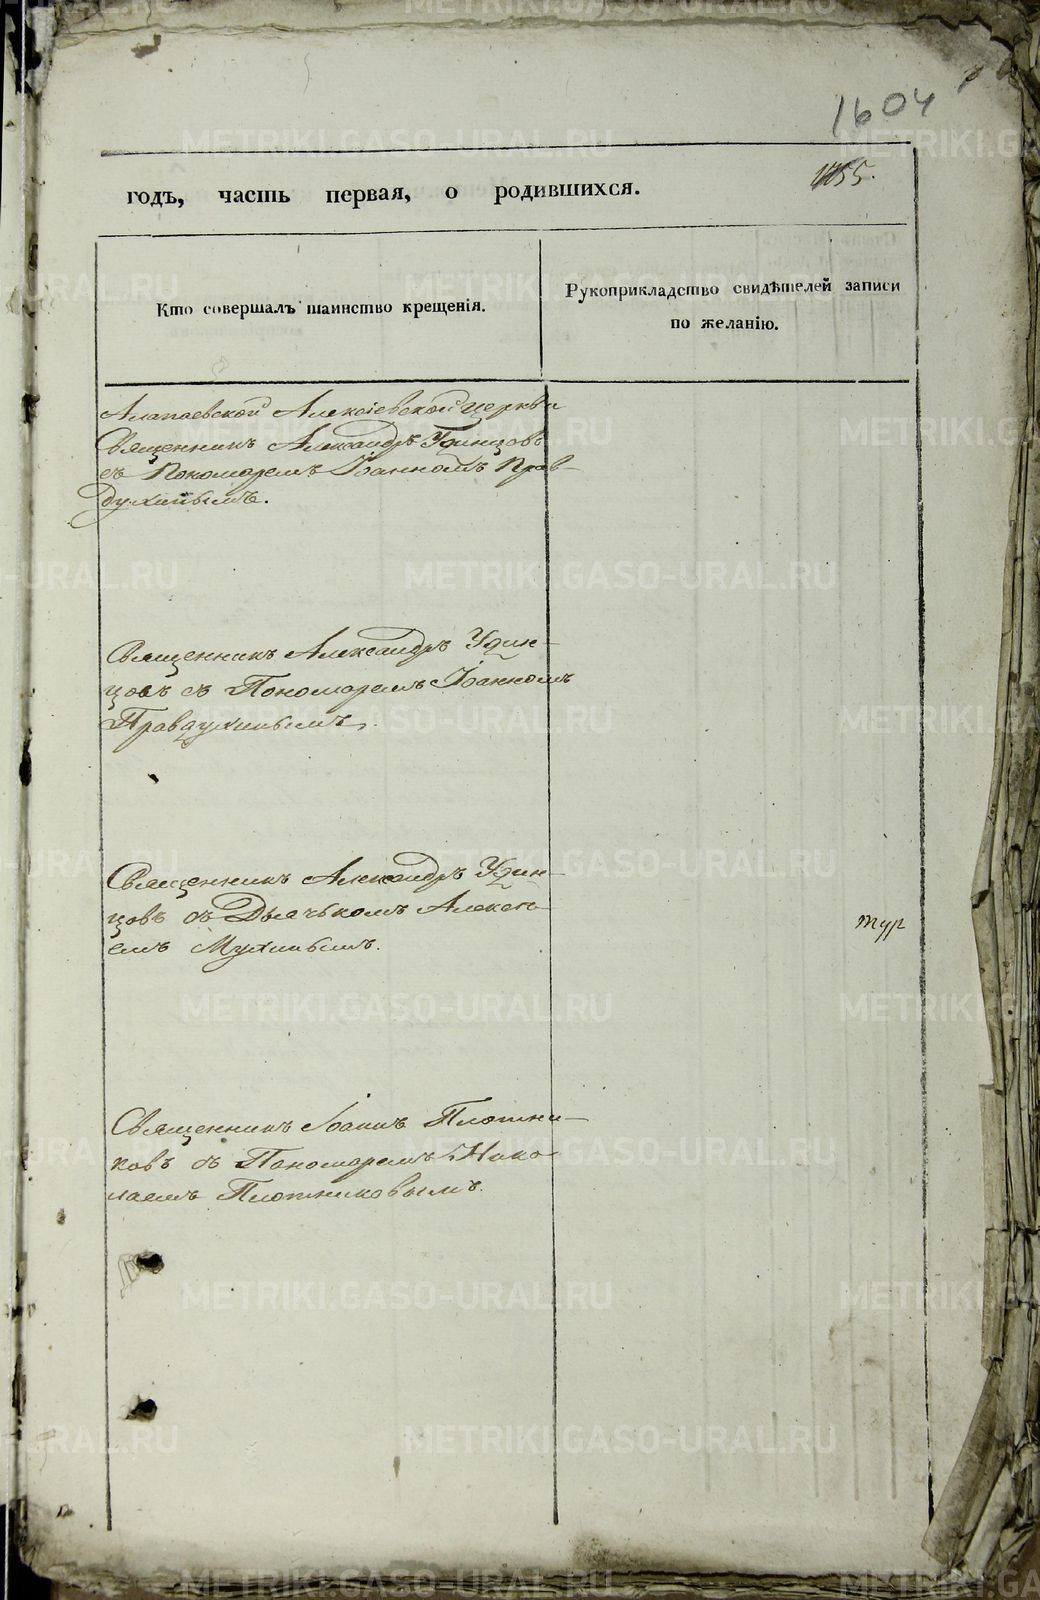 1604
1155.
годъ, часть первая, о родившихся.
Кто совершалъ таинство крещенія.
Рукоприкладство свидѣтелей записи
по желанію.
Алапаевской Алексіевской церкви
Священникъ Александръ Удинцовъ
съ Пономаремъ Іоанномъ Прав-
духинымъ.
Священникъ Александръ Удин-
цовъ съ Пономаремъ Іоанномъ
Правдухинымъ.
Священникъ Александръ Удин-
цовъ съ Дьячькомъ Алексѣ-
емъ Мухинымъ.
тур
Священникъ Іоаннъ Плотни-
ковъ съ Пономаремъ Нико-
лаемъ Плотниковымъ.
METRIKI.GASO-URAL.RU